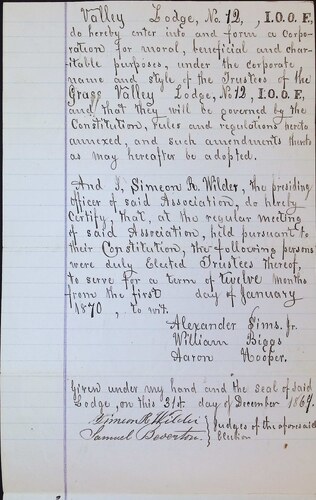 Valley Lodge, No. 12, , I.O.O.F,
do hereby enter into and form a corpo-
ration for moral, beneficial and char-
itable purposes, under the corporate
name and style of the Trustees of the
Grass Valley Lodge, No 12, I.O.O.F,
and that they will be governed by the
Constitution, rules and regulations hereto
annexed, and such amendments thereto
as may hereafter be adopted.
And I, Simeon R. Wilder, the presiding
Officer of said Association, do hereby
Certify, that, at the regular meeting
of said Association, held pursuant to
their Constitution, the following persons
were duly Elected Trustees thereof,
to serve for a term of twelve months
from the first day of January
1870, to wit.
Alexander Sims. Jr.
William Biggs
Aaron Hooper.
Given under my hand and the seal of said
Lodge, on this 31st. day of December 1869.
Simeon R Wilder
Samuel Boverton. } Judges of the aforesaid
Election